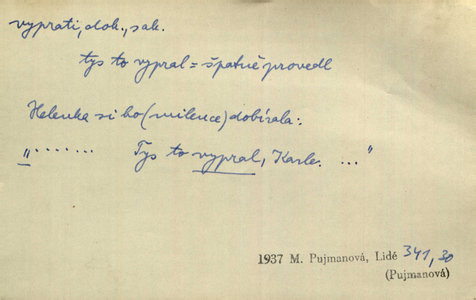 vyprati, dok., sak.
tys to vypral = špatně provedl
Helenka si ho (milence) dobírala:
„....... Tys to vypral, Karle. ..."
1937 M. Pujmanová, Lidé 341,30
(Pujmanová)